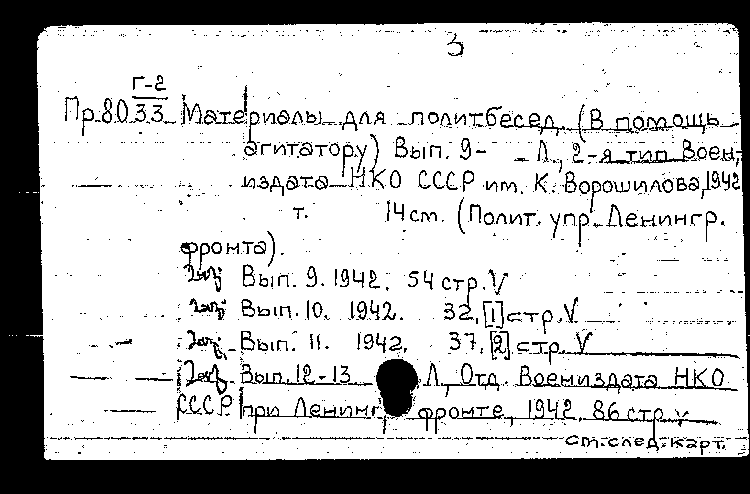 3
Г-2
Пр.80 33 Материалы для политбесед. (В помощь
агитатору) Вып. 9- - Л., 2-я тип. Воен-
издата НКО СССР им. К. Ворошилова, 1942
т. 14 см. (Полит. упр. Ленингр.
фронта).
Вып. 9. 1942. 54 стр. V
Вып. 10. 1942. 32, [1] стр. V
Вып. 11. 1942. 37, [2] стр. V
Вып. 12-13 Л., Отд. Воениздата НКО
СССР при Ленингр. фронте, 1942. 86 стр. v
См. след. карт.